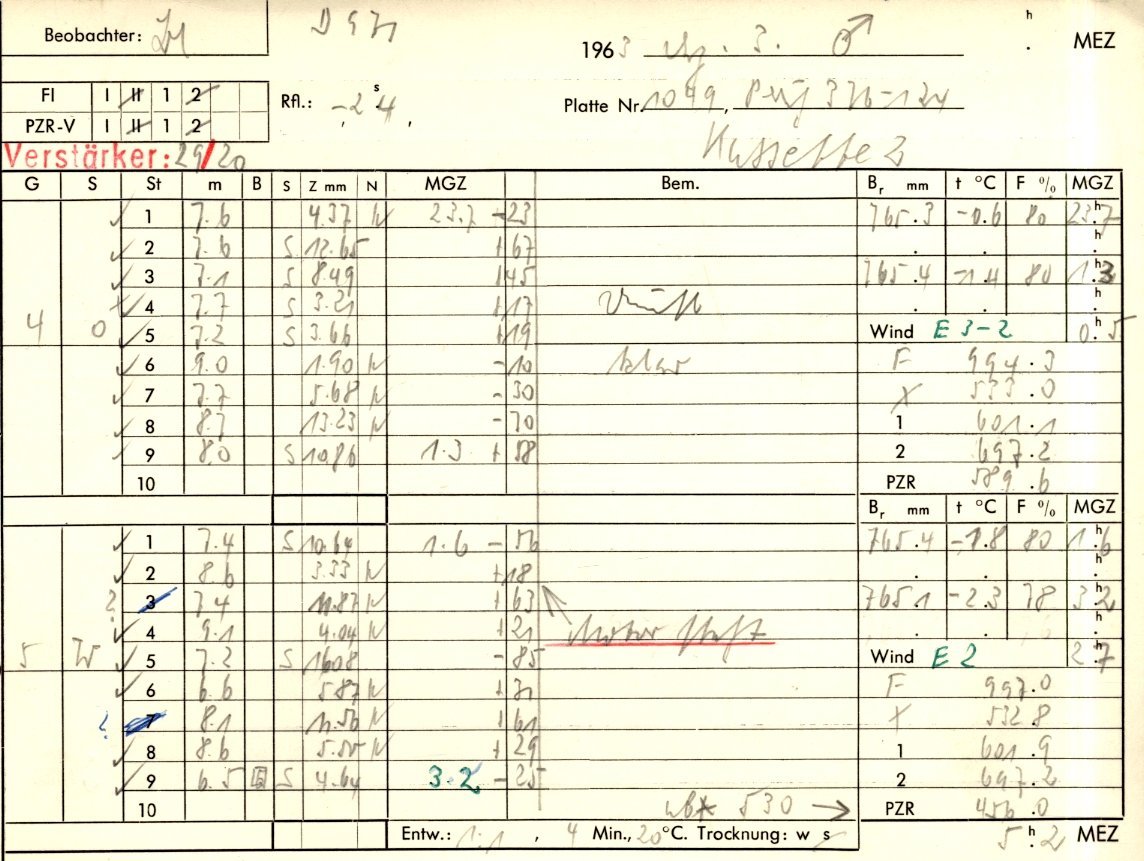 Beobachter:
1963 3. ♂ h . MEZ
FI I II 1 2
PZR-V I II 1 2
Rfl.: -.24 s
Platte Nr. 1049, 376-124
Kassette 2
Verstärker: 29/20
G S St m B S Z mm N MGZ Bem. Br mm t °C F % MGZ
1 7.6 4.37 N 23.7 -23 765.3 -0.6 80 23.7 h
2 7.6 S 12.65 +67
3 7.1 S 8.49 +45 765.4 -1.4 80 1.3 h
4 7.7 S 3.21 +17
4 0 5 7.2 S 3.66 +19 Wind E 3-2 0.5 h
6 9.0 1.90 N -10 klar F 994.3
7 7.7 5.68 N -30 X 533.0
8 8.7 13.23 N -70 1 601.1
9 8.0 S 10.86 1.3 +58 2 697.2
10 PZR 589.6
Br mm t °C F % MGZ
1 7.4 S 10.64 1.6 -56 765.4 -1.8 80 1.6 h
2 8.6 3.33 N +18
? 3 7.4 11.87 N +63 765.1 -2.3 78 3.2 h
4 9.1 4.04 N +21 Motor
5 W 5 7.2 S 16.08 -85 Wind E 2 2.7 h
6 6.6 5.87 N +31 F 997.0
? 7 8.1 11.56 N +61 X 532.8
8 8.6 5.55 N +29 1 601.9
9 6.5 S 4.64 3.2 -25 2 697.2
10 530 → PZR 456.0
Entw.: 1:1, 4 Min., 20°C. Trocknung: w s 5.2 h MEZ